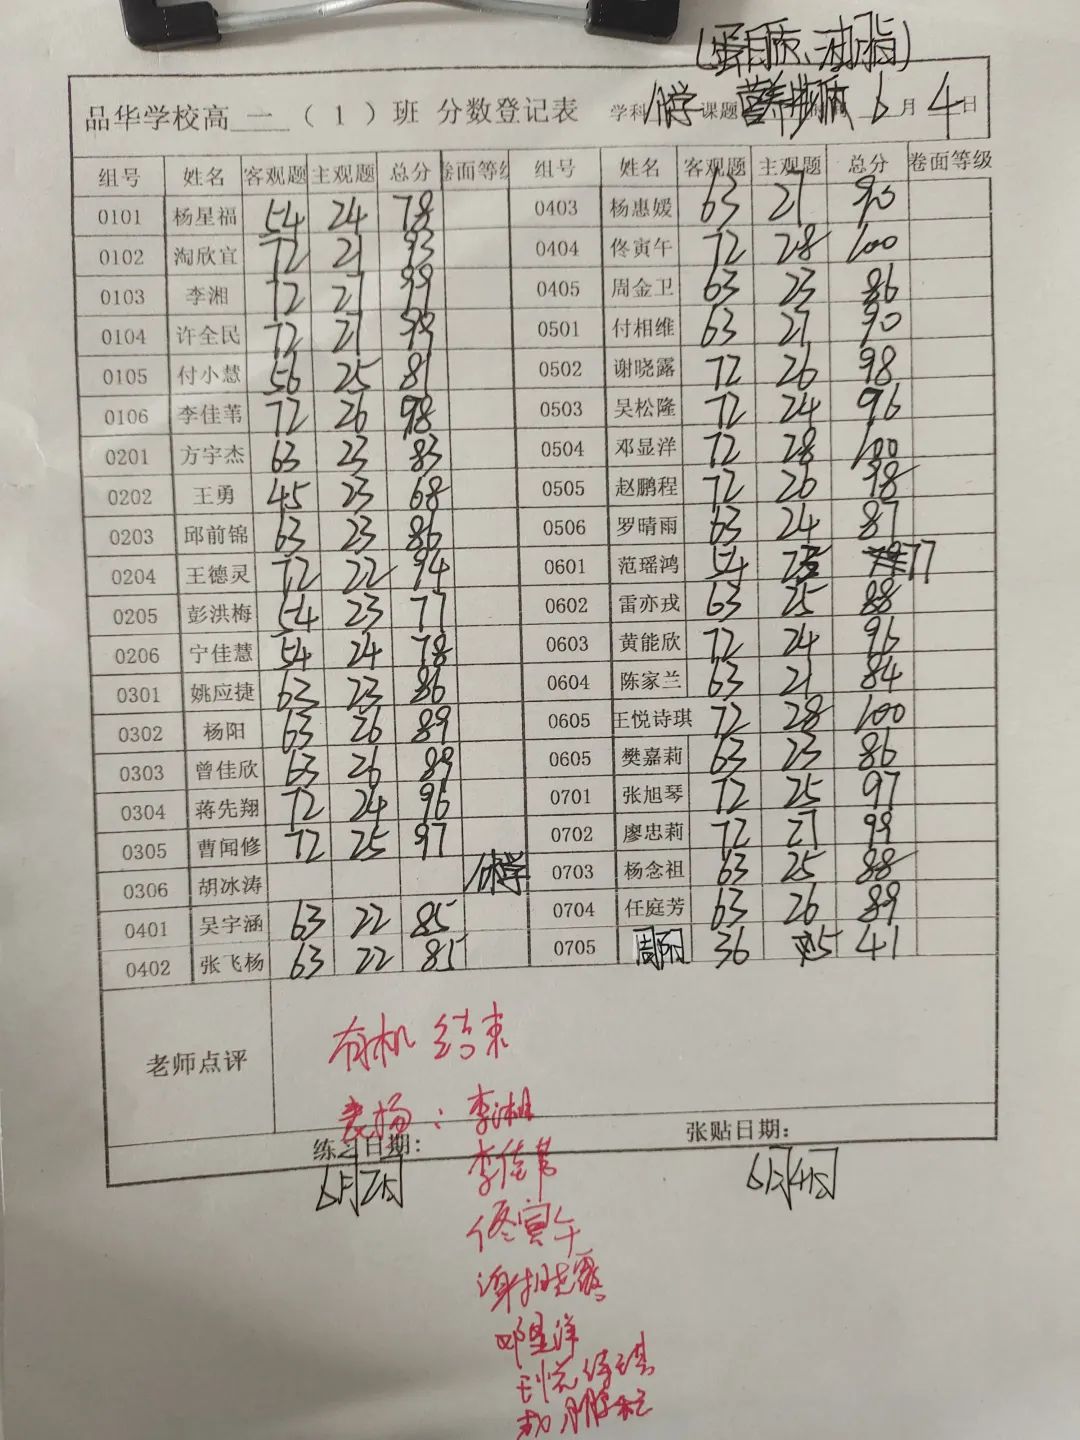 (蛋白质、油脂)
品华学校高 一 （ 1 ）班 分数登记表 学科 化学 课题 营养物质 6 月 4 日
组号 姓名 客观题 主观题 总分 卷面等级 组号 姓名 客观题 主观题 总分 卷面等级
0101 杨星福 54 24 78 0403 杨惠媛 63 27 90
0102 淘欣宜 72 21 93 0404 佟寅午 72 28 100
0103 李湘 72 27 99 0405 周金卫 63 23 86
0104 许全民 72 21 0501 付相维 63 27 90
0105 付小慧 56 25 81 0502 谢晓露 72 26 98
0106 李佳苇 72 26 98 0503 吴松隆 72 24 96
0201 方宇杰 63 23 83 0504 邓显洋 72 28 100
0202 王勇 45 23 68 0505 赵鹏程 72 26 98
0203 邱前锦 63 23 86 0506 罗晴雨 63 24 87
0204 王德灵 72 22 94 0601 范瑶鸿 54 77
0205 彭洪梅 54 23 77 0602 雷亦戎 63 25 88
0206 宁佳慧 54 24 78 0603 黄能欣 72 24 96
0301 姚应捷 63 23 86 0604 陈家兰 63 21 84
0302 杨阳 63 26 89 0605 王悦诗琪 72 28 100
0303 曾佳欣 63 26 89 0605 樊嘉莉 63 23 86
0304 蒋先翔 72 24 96 0701 张旭琴 72 25 97
0305 曹闻修 72 25 97 0702 廖忠莉 72 27 99
0306 胡冰涛 休学 0703 杨念祖 63 25 88
0401 吴宇涵 63 22 85 0704 任庭芳 63 26 89
0402 张飞杨 63 22 85 0705 36 5 41
老师点评
有机 结束
表扬：李湘
练习日期： 张贴日期：
李佳苇
6月2日 6月4日
佟寅午
谢晓露
邓显洋
王悦诗琪
赵鹏程